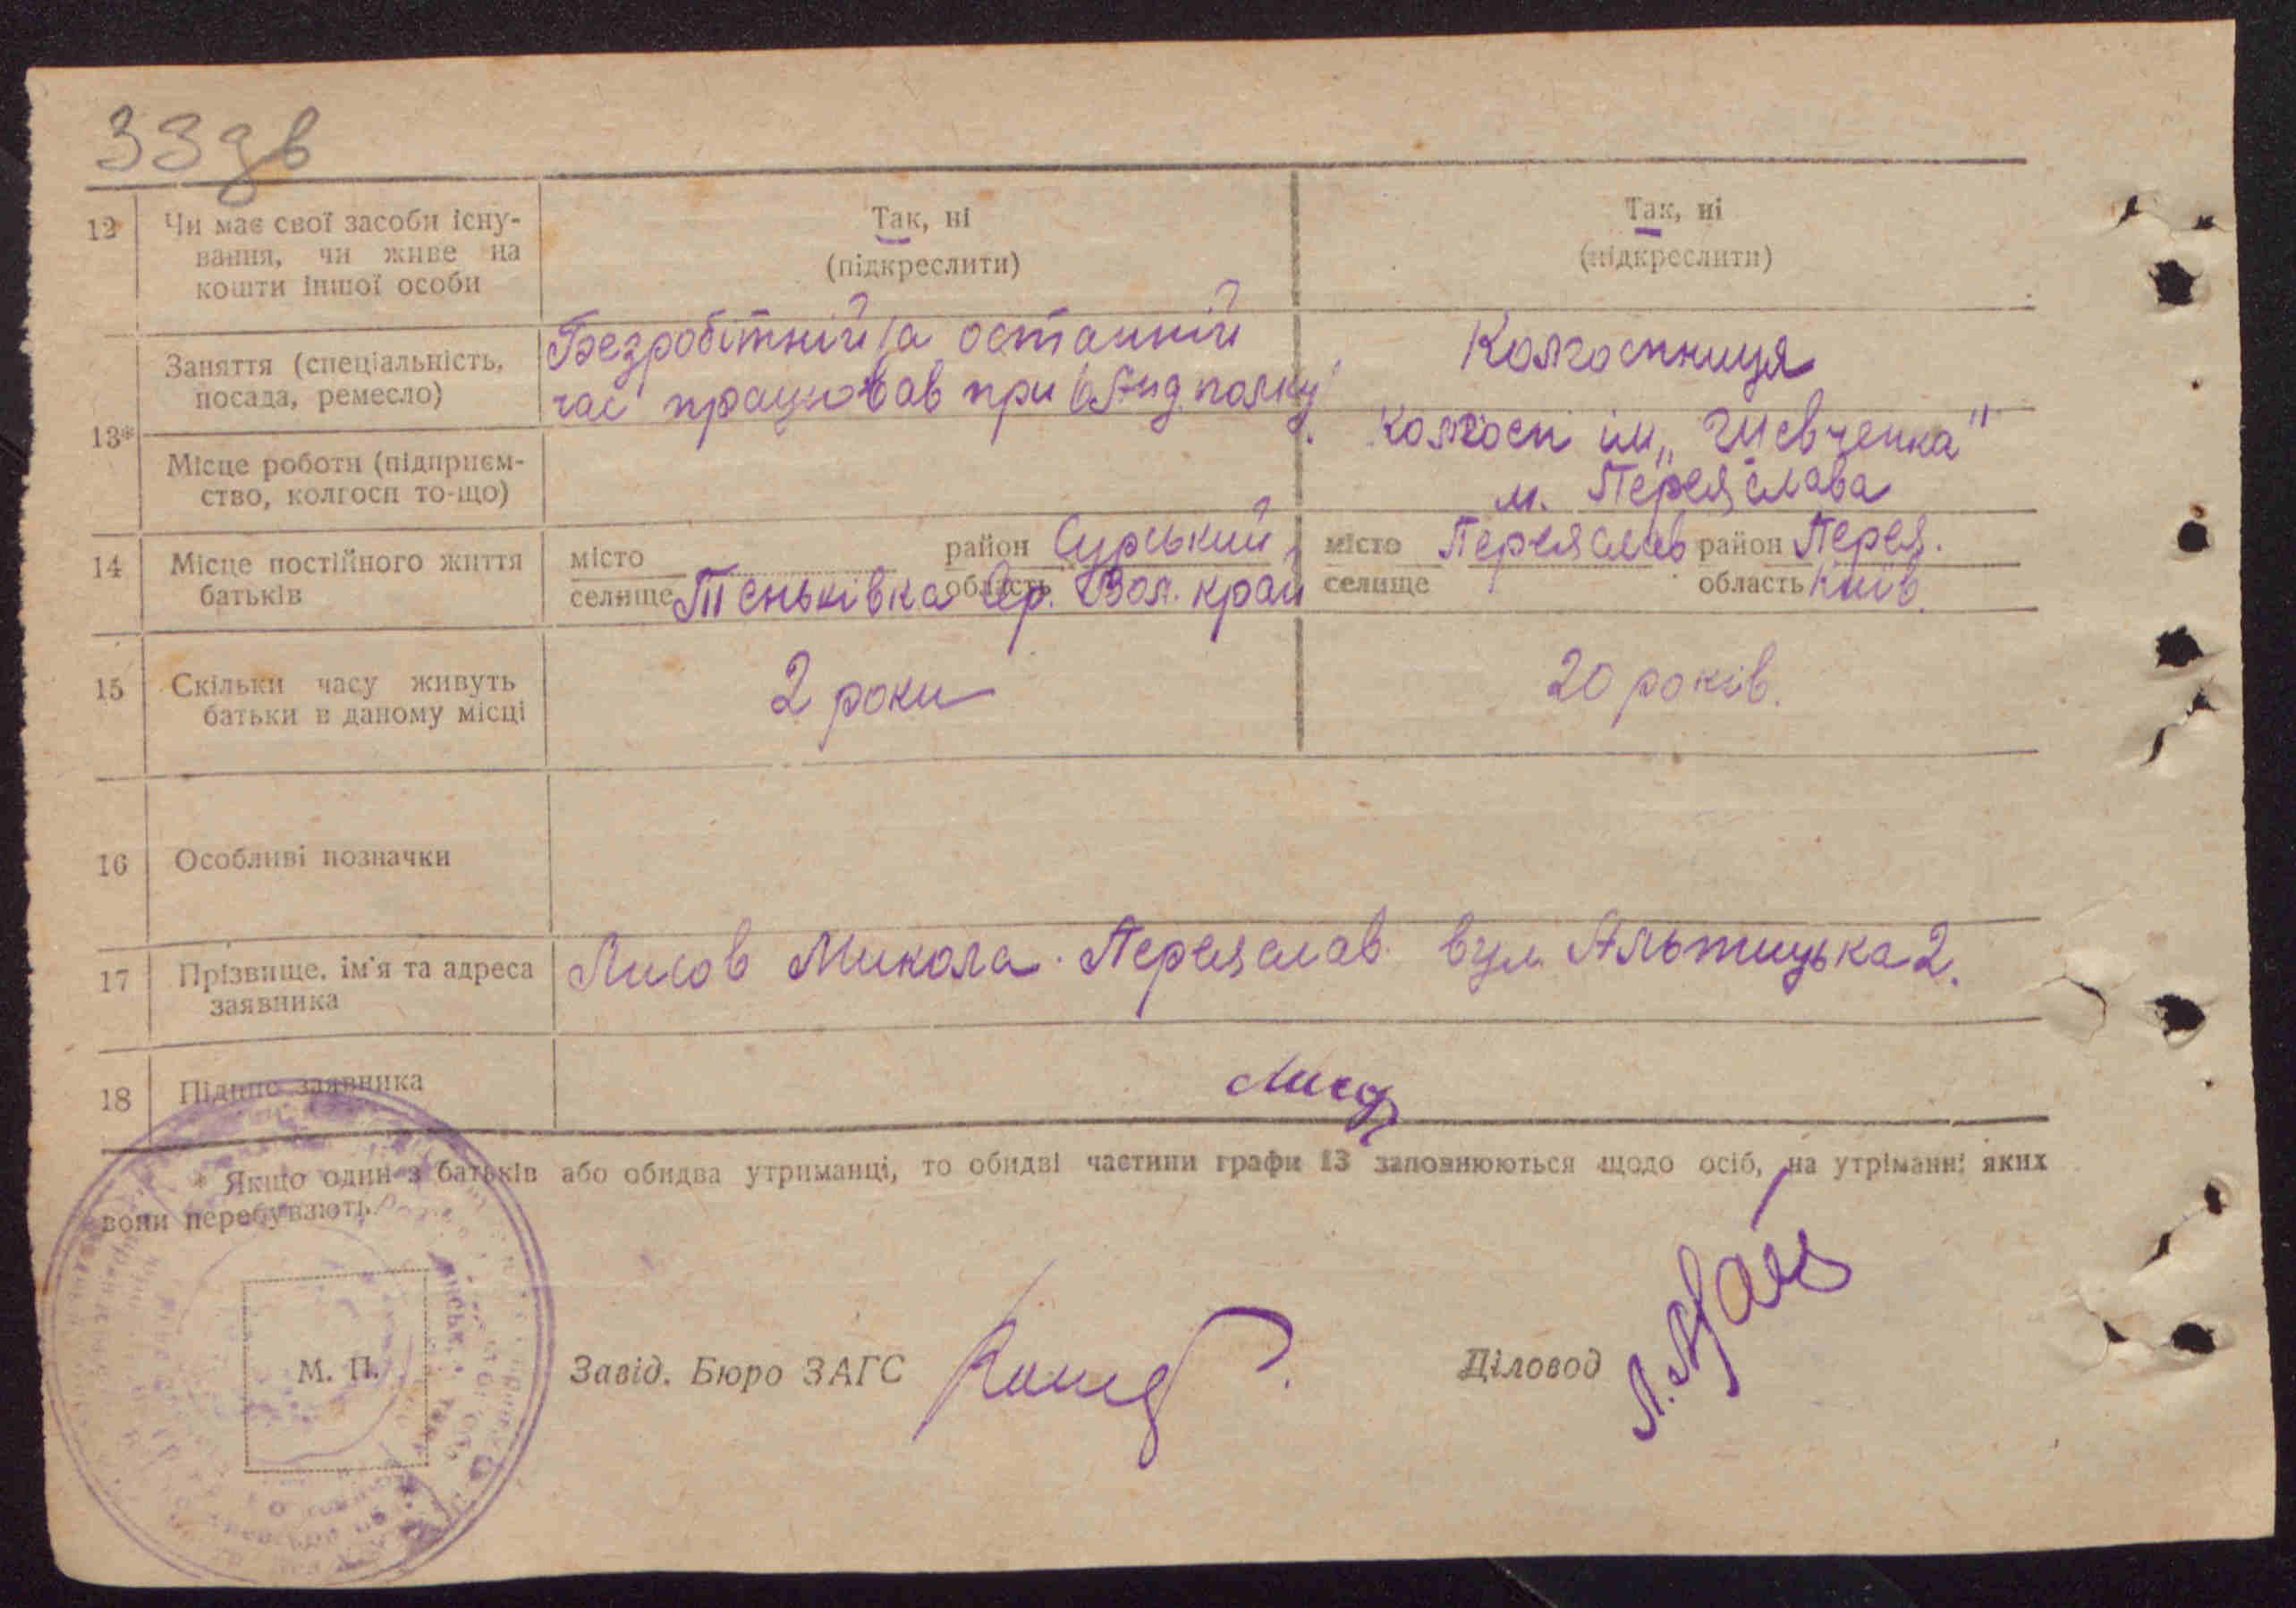 33 дв
12 Чи має свої засоби існу-
вання, чи живе на
кошти іншої особи
Так, ні
(підкреслити)
Так, ні
(підкреслити)
13*
Заняття (спеціальність,
посада, ремесло)
Безробітній а останній
час працював при полку
Колгоспниця
Місце роботи (підприєм-
ство, колгосп то-що)
Колгосп ім „Шевченка"
м. Переяслава
14 Місце постійного життя
батьків
місто район Сурський
селище Теньківка область Ср. Вол. край
місто Переяслав район Перея.
селище область Київ.
15 Скільки часу живуть
батьки в даному місці
2 роки
20 років.
16 Особливі позначки
17 Прізвище, ім'я та адреса
заявника
Лисов Микола. Переяслав. вул. Альтицька 2.
18 Підпис заявника
* Якщо один з батьків або обидва утриманці, то обидві частини графи 13 заповнюються щодо осіб, на утріманні яких
вони перебувають.
М. П.
Завід. Бюро ЗАГС
Діловод